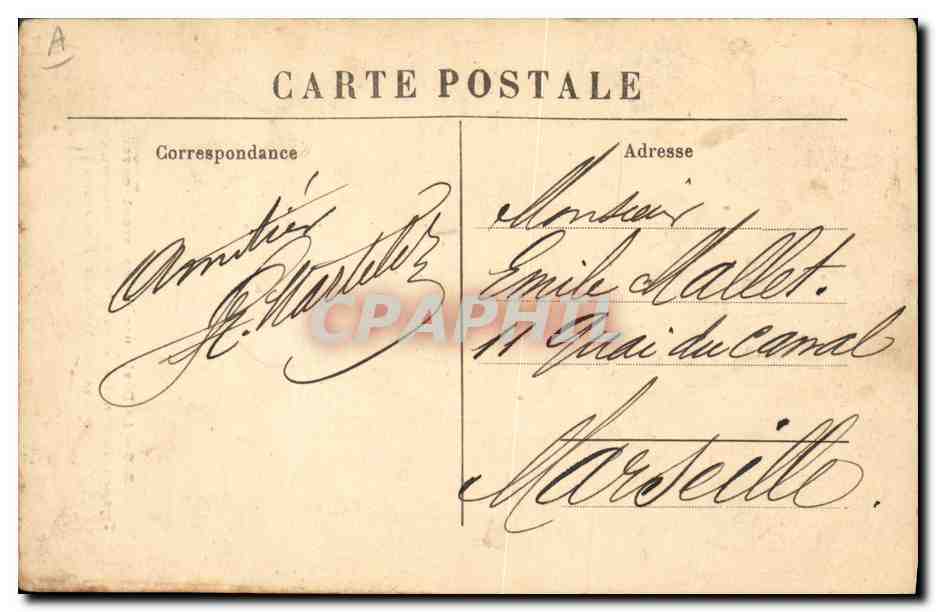 A
CARTE POSTALE
Correspondance
Amitiés
Adresse
Monsieur
Emile Mallet.
11 Quai du Canal
Marseille.
CPAPHIL